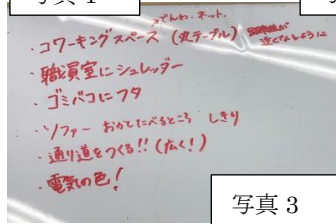 写真1
でんわ・ネット
・コワーキングスペース(丸テーブル)
近くなるように
・職員室にシュレッダー
・ゴミバコにフタ
・ソファー おかしたべるところ しきり
・通り道をつくる!!(広く!)
・電気の色!
写真3